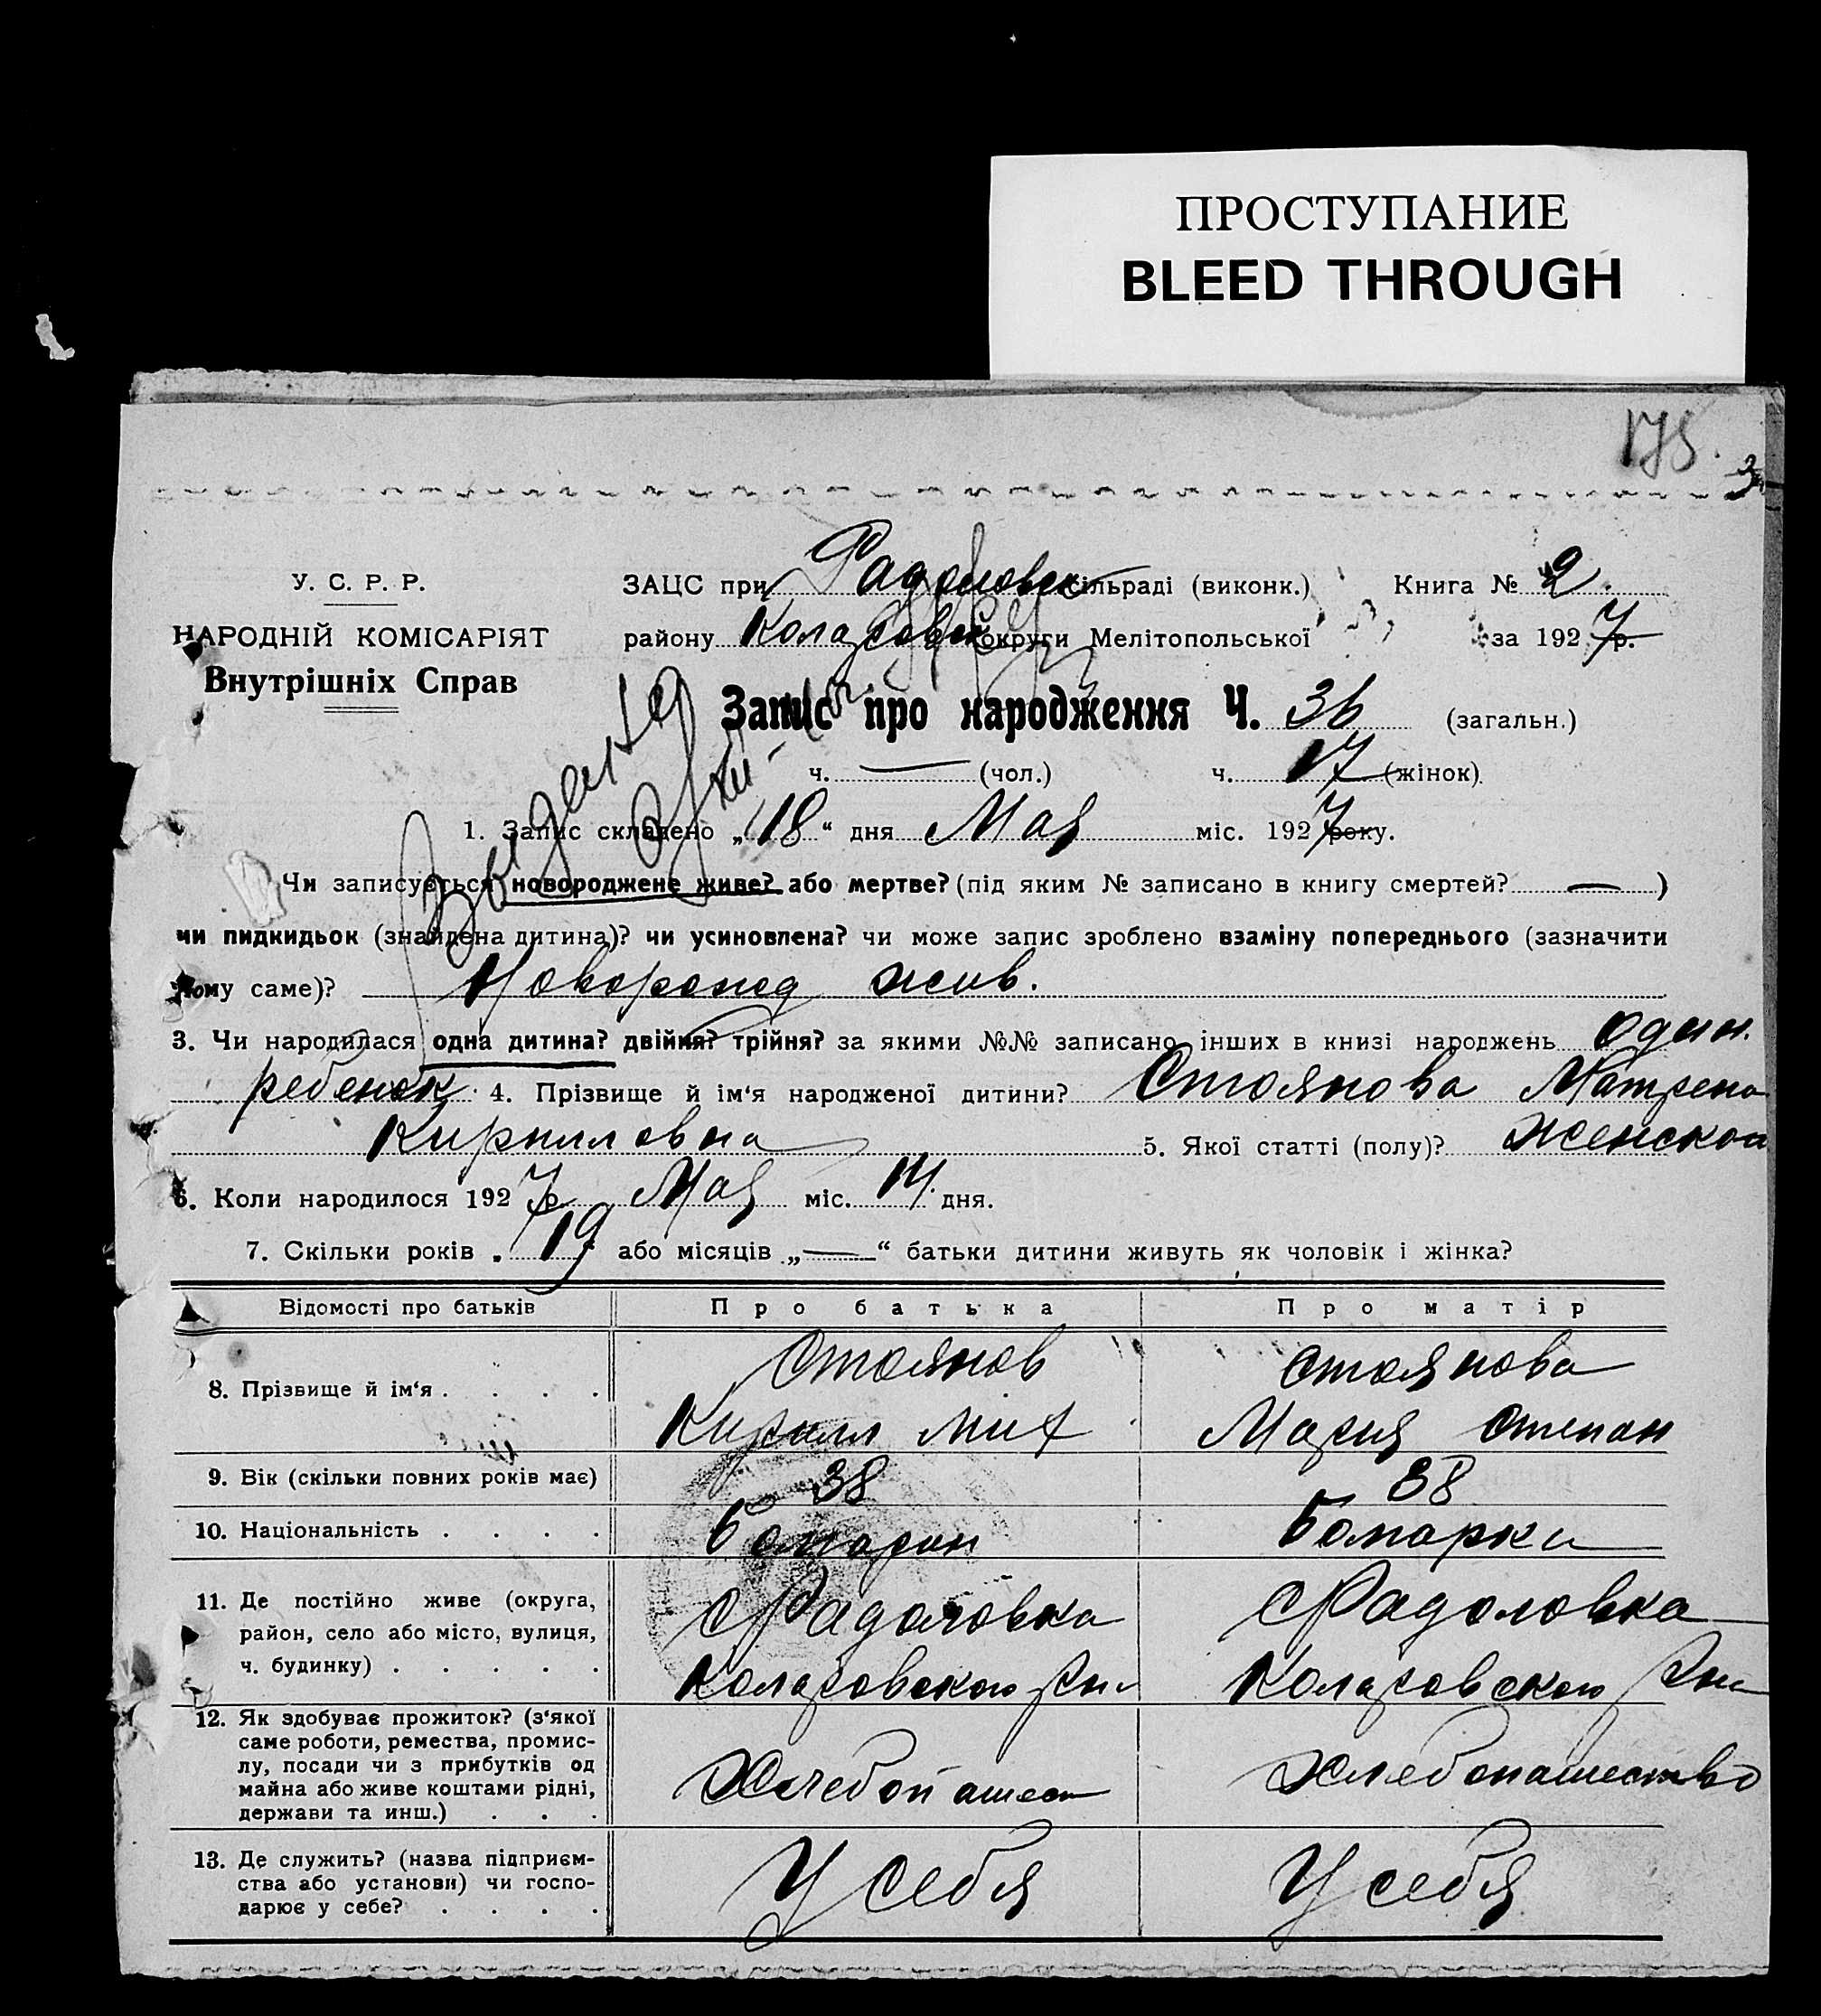 ПРОСТУПАНИЕ
BLEED THROUGH
175.
3
У. С. Р. Р.
НАРОДНІЙ КОМІСАРІЯТ
Внутрішніх Справ
ЗАЦС при Радоловск сільраді (виконк.) Книга № 2
району Коларовск округи Мелітопольської за 1927 р.
Запис про народження Ч. 36 (загальн.)
ч. — (чол.) ч. 17 (жінок)
1. Запис складено „18“ дня Мая міс. 1927 року.
Чи записується новороджене живе? або мертве? (під яким № записано в книгу смертей? — )
чи пидкидьок (знайдена дитина)? чи усиновлена? чи може запис зроблено взаміну попереднього (зазначити
чому саме)? Новорожд жив.
3. Чи народилася одна дитина? двійня? трійня? за якими №№ записано інших в книзі народжень один.
ребенок 4. Прізвище й ім‘я народженої дитини? Стоянова Матрена
Кирилловна 5. Якої статті (полу)? Женской
6. Коли народилося 1927 р. Мая міс. 14. дня.
7. Скільки років „19“ або місяців „—“ батьки дитини живуть як чоловік і жінка?
Відомості про батьків Про батька Про матір
8. Прізвище й ім‘я . . . . Стоянов Стоянова
Кирилл Мих Мария Степан
9. Вік (скільки повних років має) 38 38
10. Національність . . . . Болгарин Болгарка
11. Де постійно живе (округа, район, село або місто, вулиця, ч. будинку) . . . . . с Радоловка с Радоловка
Коларовского Рна Коларовского Рна
12. Як здобуває прожиток? (з‘якої
саме роботи, ремества, промис-
лу, посади чи з прибутків од
майна або живе коштами рідні,
держави та инш.) . . . Хлебопашест Хлебопашество
13. Де служить? (назва підприєм-
ства або установи) чи госпо-
дарює у себе? . . . . У себя У себя